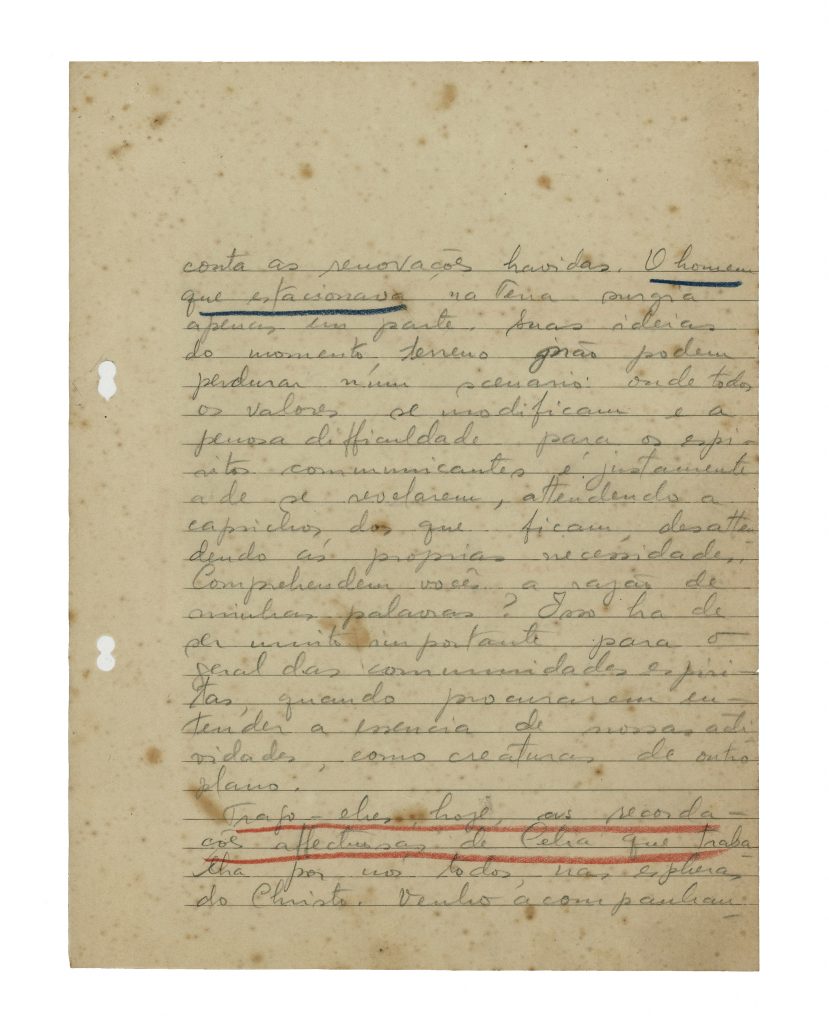 conta as renovações havidas. O homem
que estacionava na Terra surgia
apenas em parte. Suas ideias
do momento terreno não podem
perdurar n'um scenario onde todos
os valores se modificam e a
penosa difficuldade para os espi-
ritos communicantes é justamente
a de se revelarem, attendendo a
caprichos dos que ficam, desatten
dendo ás proprias necessidades.
Comprehendem vocês a razão de
minhas palavras? Isso ha de
ser muito importante para o
geral das communidades espiri-
tas, quando procurarem en-
tender a essencia de nossas acti
vidades, como creaturas de outro
plano.
Trago-lhes, hoje, as recorda-
ções affectuosas de Celia que traba
lha por nós todos, nas espheras
do Christo. Venho acompanhan-